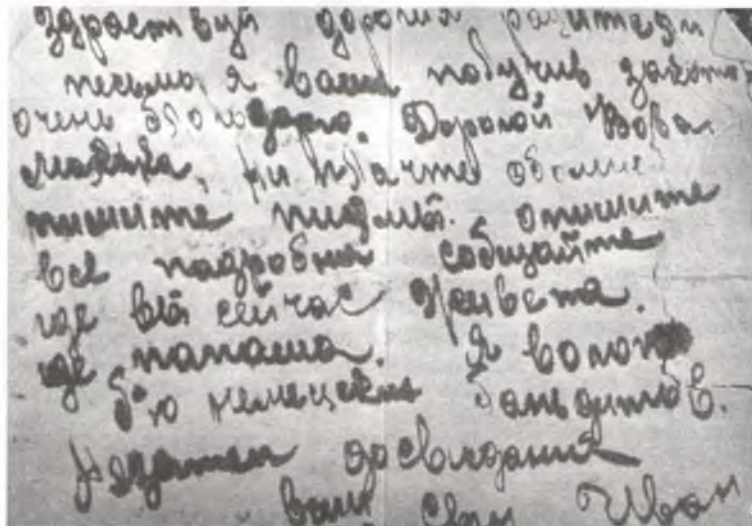 Здраствуй дорогия радители
письмо я ваше получив
очень благодарю. Дорогой Вова
мамаша, ни плачте обомне
пишите письмы. опишите
всё падробна сабщайте
где вы сейчас живета.
где папаша. Я
бю немецких бандитов.
Незатем досвидания
ваш сын Иван